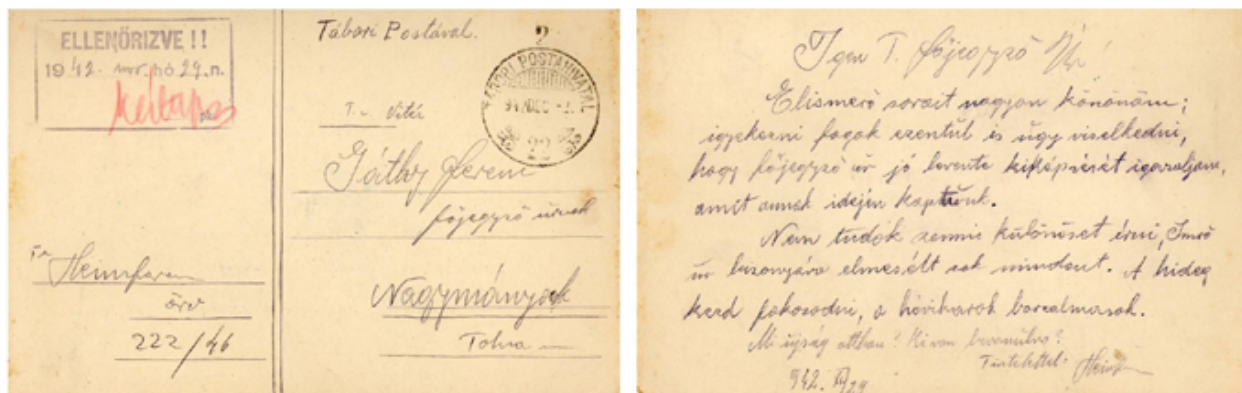 ELLENŐRIZVE !!
1942. nov. hó 29. n.
Tábori Postával.
2
TÁBORI POSTAHIVATAL
22
T. Vitéz
Gáthy Ferenc
főjegyző úrnak
Nagymányok
Tolna
Heim
őrv
222/46
Igen T. főjegyző Úr!
Elismerő sorait nagyon könönöm;
igyekezni fogok ezentúl is úgy viselkedni,
hogy főjegyző úr jó levente kiképzését igazoljam,
amit annak idején kaptunk.
Nem tudok semmi különöset írni, Imrő
úr bizonyára elmesélt sok mindent. A hideg
kezd fokozódni, a hóviharok borzalmasak.
Mi újság otthon? Ki van bevonulva?
Tisztelettel: Heim
942. XI/29